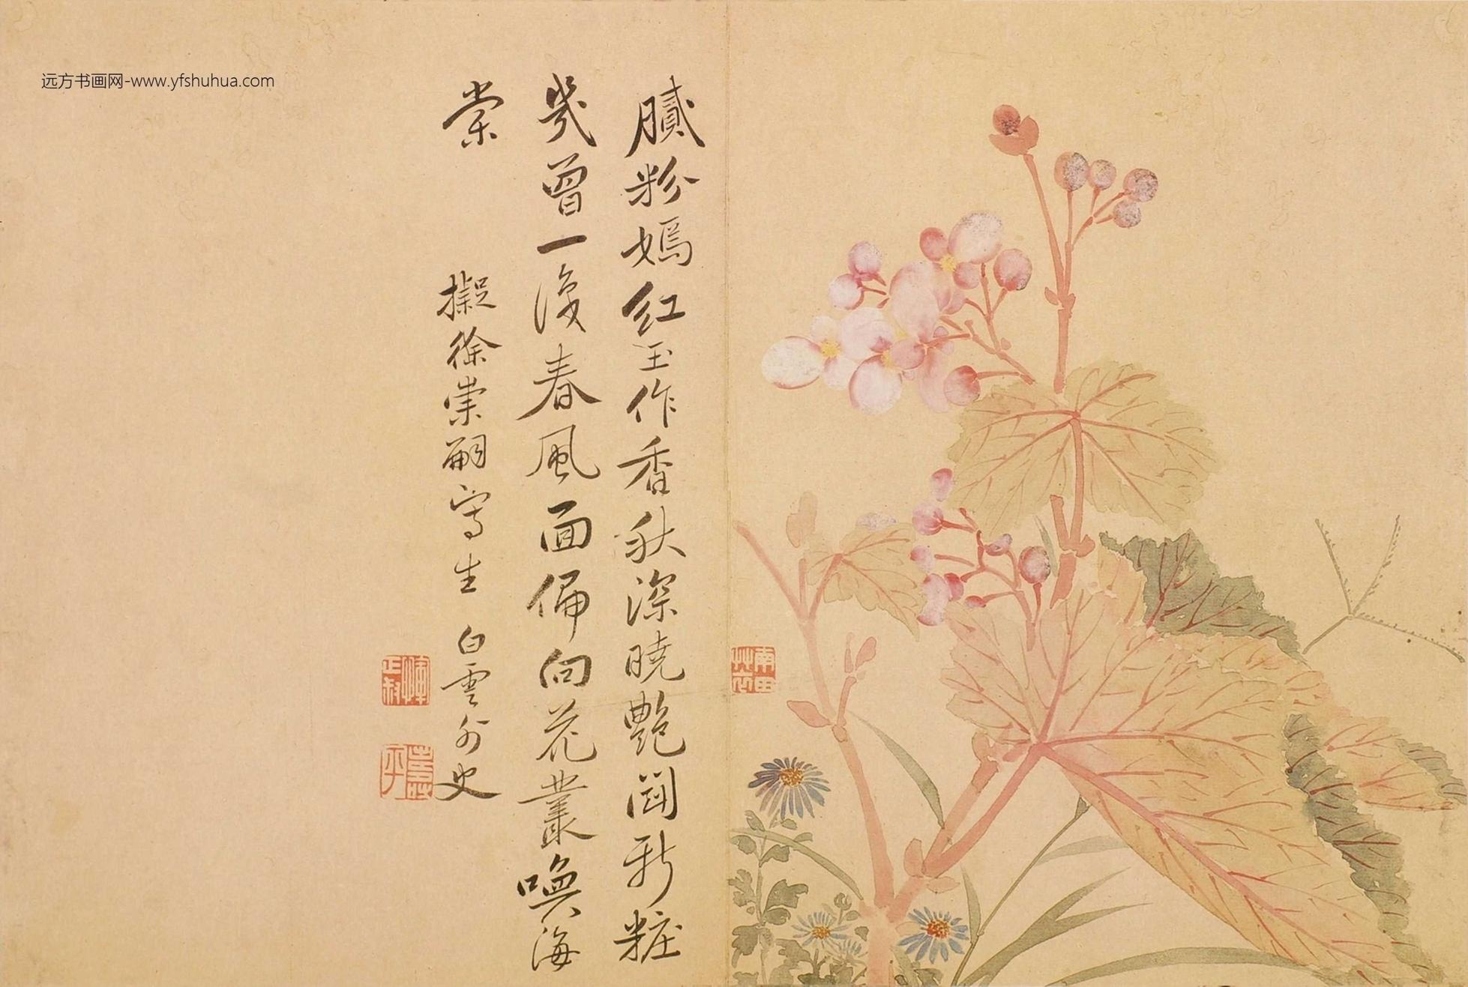 远方书画网-www.yfshuhua.com
膩粉嫣紅玉作香秋深曉艷鬥新粧
幾曾一復春風面偏向花叢喚海
棠 擬徐崇嗣寫生 白雲外史
惲正叔
壽平
南田草衣